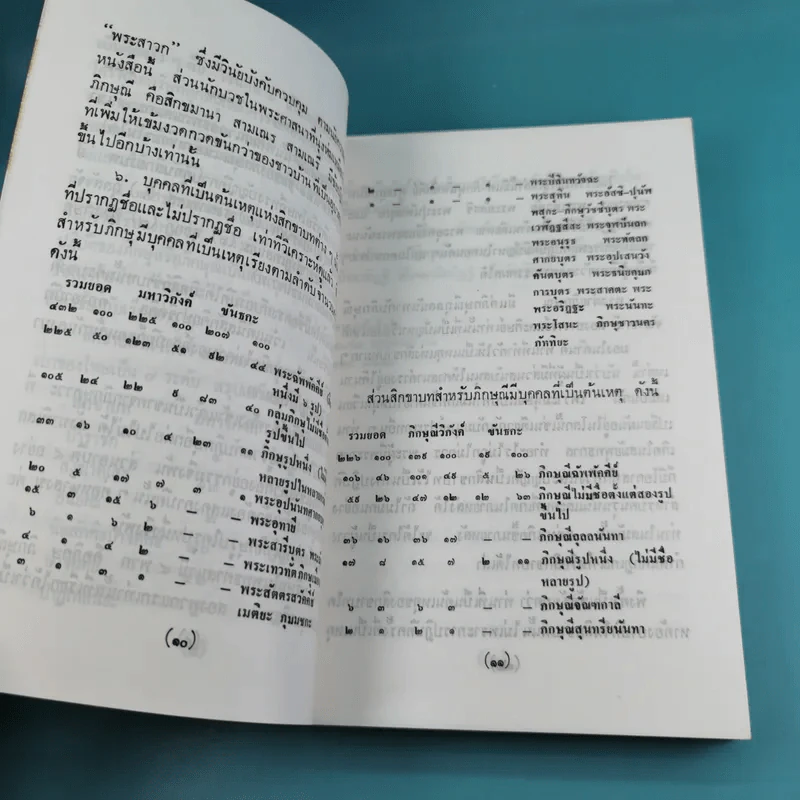 “พระสาวก” ซึ่งมีวินัยบังคับควบคุม
หนังสือนี้ ส่วนนักบวชในพระศาสนาที่
ภิกษุณี คือสิกขมานา สามเณร สามเณรี
ที่เพิ่มให้เข้มงวดกวดขันกว่าของชาวบ้าน
ขึ้นไปอีกบ้างเท่านั้น
๖. บุคคลที่เป็นต้นเหตุแห่งสิกขาบทต่าง ๆ
ที่ปรากฏชื่อและไม่ปรากฏชื่อ เท่าที่วิเคราะห์ดูแล้ว
สำหรับภิกษุมีบุคคลที่เป็นเหตุเรียงตามลำดับจำนวน
ดังนี้
รวมยอด มหาวิภังค์ ขันธกะ
๔๓๒ ๑๐๐ ๒๒๕ ๑๐๐ ๒๐๗ ๑๐๐
๒๒๕ ๕๐ ๑๒๓ ๕๑ ๙๒ ๔๔ พระฉัพพัคคีย์
หนึ่งมี ๖ รูป)
๑๐๕ ๒๔ ๒๒ ๙ ๘๓ ๔๐ กลุ่มภิกษุไม่มีชื่อ
รูปขึ้นไป
๓๓ ๑๖ ๑๐ ๔ ๒๓ ๑๑ ภิกษุรูปหนึ่ง
หลายรูปในหลาย
๒๐ ๕ ๑๗ ๗ ๓ ๑ พระอุปนันท
๑๕ ๓ ๑๕ ๖ — — พระอุทายี
๖ ๑ ๖ ๒ — — พระสารีบุตร
๔ ๑ ๔ ๒ — — พระเทวทัต
๓ ๑ ๓ ๑ — — พระสัตตรสวัคคีย์
เมตติยะ ภุมมชกะ
(๑๐)
๒ — ๑ — ๑ — พระปิลินทวัจฉะ
๑ — ๑ — ๑ — พระสุทิน พระอัสซิ-ปุนัพ
พสุกะ ภิกษุวัชชีบุตร พระ
เวฬัฏฐสีสะ พระจูฬปันถก
พระอนุรุธ พระทัตถ
ศากยบุตร พระอุปเสนวัง
คันตบุตร พระธนิยกุมภ
การบุตร พระสาคตะ พระ
พระอริฏฐะ พระนันทะ
พระโสนะ ภิกษุชาวนคร
ภัททิยะ
ส่วนสิกขาบทสำหรับภิกษุณีมีบุคคลที่เป็นต้นเหตุ ดังนี้
รวมยอด ภิกษุณีวิภังค์ ขันธกะ
๒๒๖ ๑๐๐ ๑๓๙ ๑๐๐ ๑๙ ๑๐๐
๑๐๖ ๔๖ ๑๐๑ ๔๙ ๕ ๒๖ ภิกษุณีฉัพพัคคีย์
๕๙ ๒๖ ๔๗ ๑๒ ๑๒ ๖๓ ภิกษุณีไม่มีชื่อตั้งแต่สองรูป
ขึ้นไป
๓๖ ๑๖ ๓๖ ๑๗ — — ภิกษุณีถุลลนันทา
๑๗ ๘ ๑๕ ๗ ๒ ๑๑ ภิกษุณีรูปหนึ่ง (ไม่มีชื่อ
หลายรูป)
๖ ๓ ๖ ๓ — — ภิกษุณีจัณฑกาลี
๒ ๑ ๒ ๑ — — ภิกษุณีสุนทรียนันทา
(๑๑)